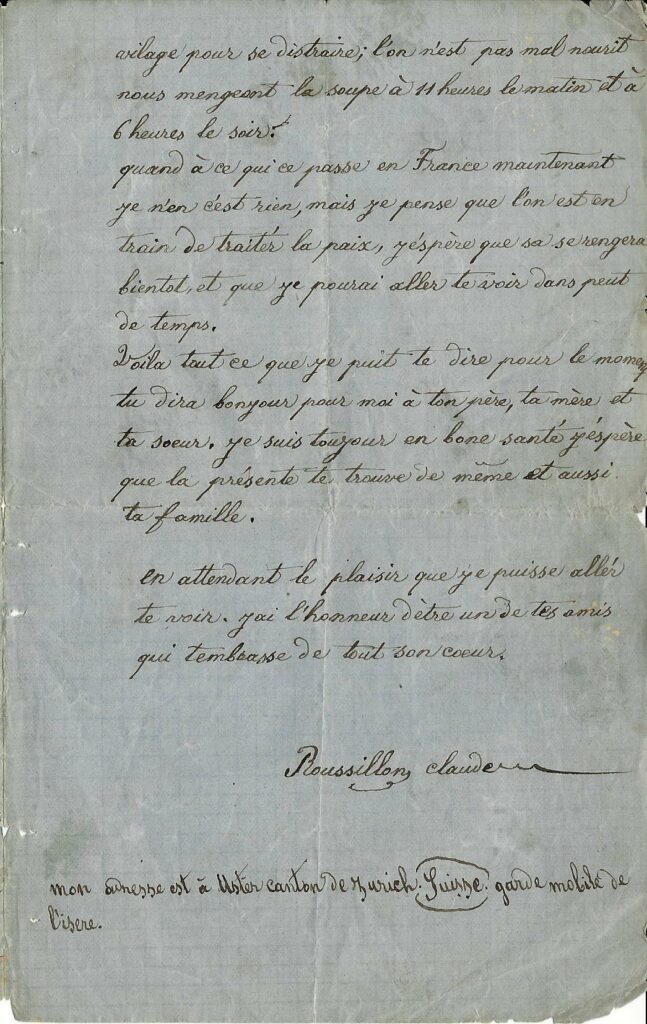 vilage pour se distraire; l'on n'est pas mal nourit
nous mengeont la soupe à 11 heures le matin et à
6 heures le soir.
quand à ce qui ce passe en France maintenant
je n'en c'est rien, mais je pense que l'on est en
train de traitér la paix, j'éspère que sa se rengera
bientot, et que je pourai aller te voir dans peut
de temps.
Voila tout ce que je puit te dire pour le moment
tu dira bonjour pour moi à ton père, ta mère et
ta soeur. je suis toujour en bone santé j'éspère
que la présente te trouve de même et aussi
ta famille.
en attendant le plaisir que je puisse allér
te voir. j'ai l'honneur d'être un de tes amis
qui t'embrasse de tout son coeur.
Roussillon claude
mon adresse est à Uster canton de zurich. Suisse. garde mobile de
l'isere.